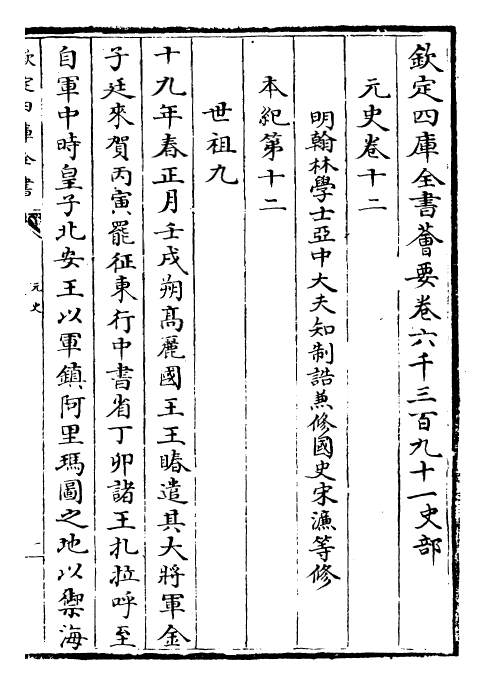 欽定四庫全書薈要卷六千三百九十一史部
元史卷十二
明翰林學士亞中大夫知制誥兼修國史宋濂等修
本紀第十二
世祖九
十九年春正月壬戌朔高麗國王王睶遣其大將軍金
子廷來賀丙寅罷征東行中書省丁卯諸王札拉呼至
自軍中時皇子北安王以軍鎮阿里瑪圖之地以禦海
欽定四庫全書
元史